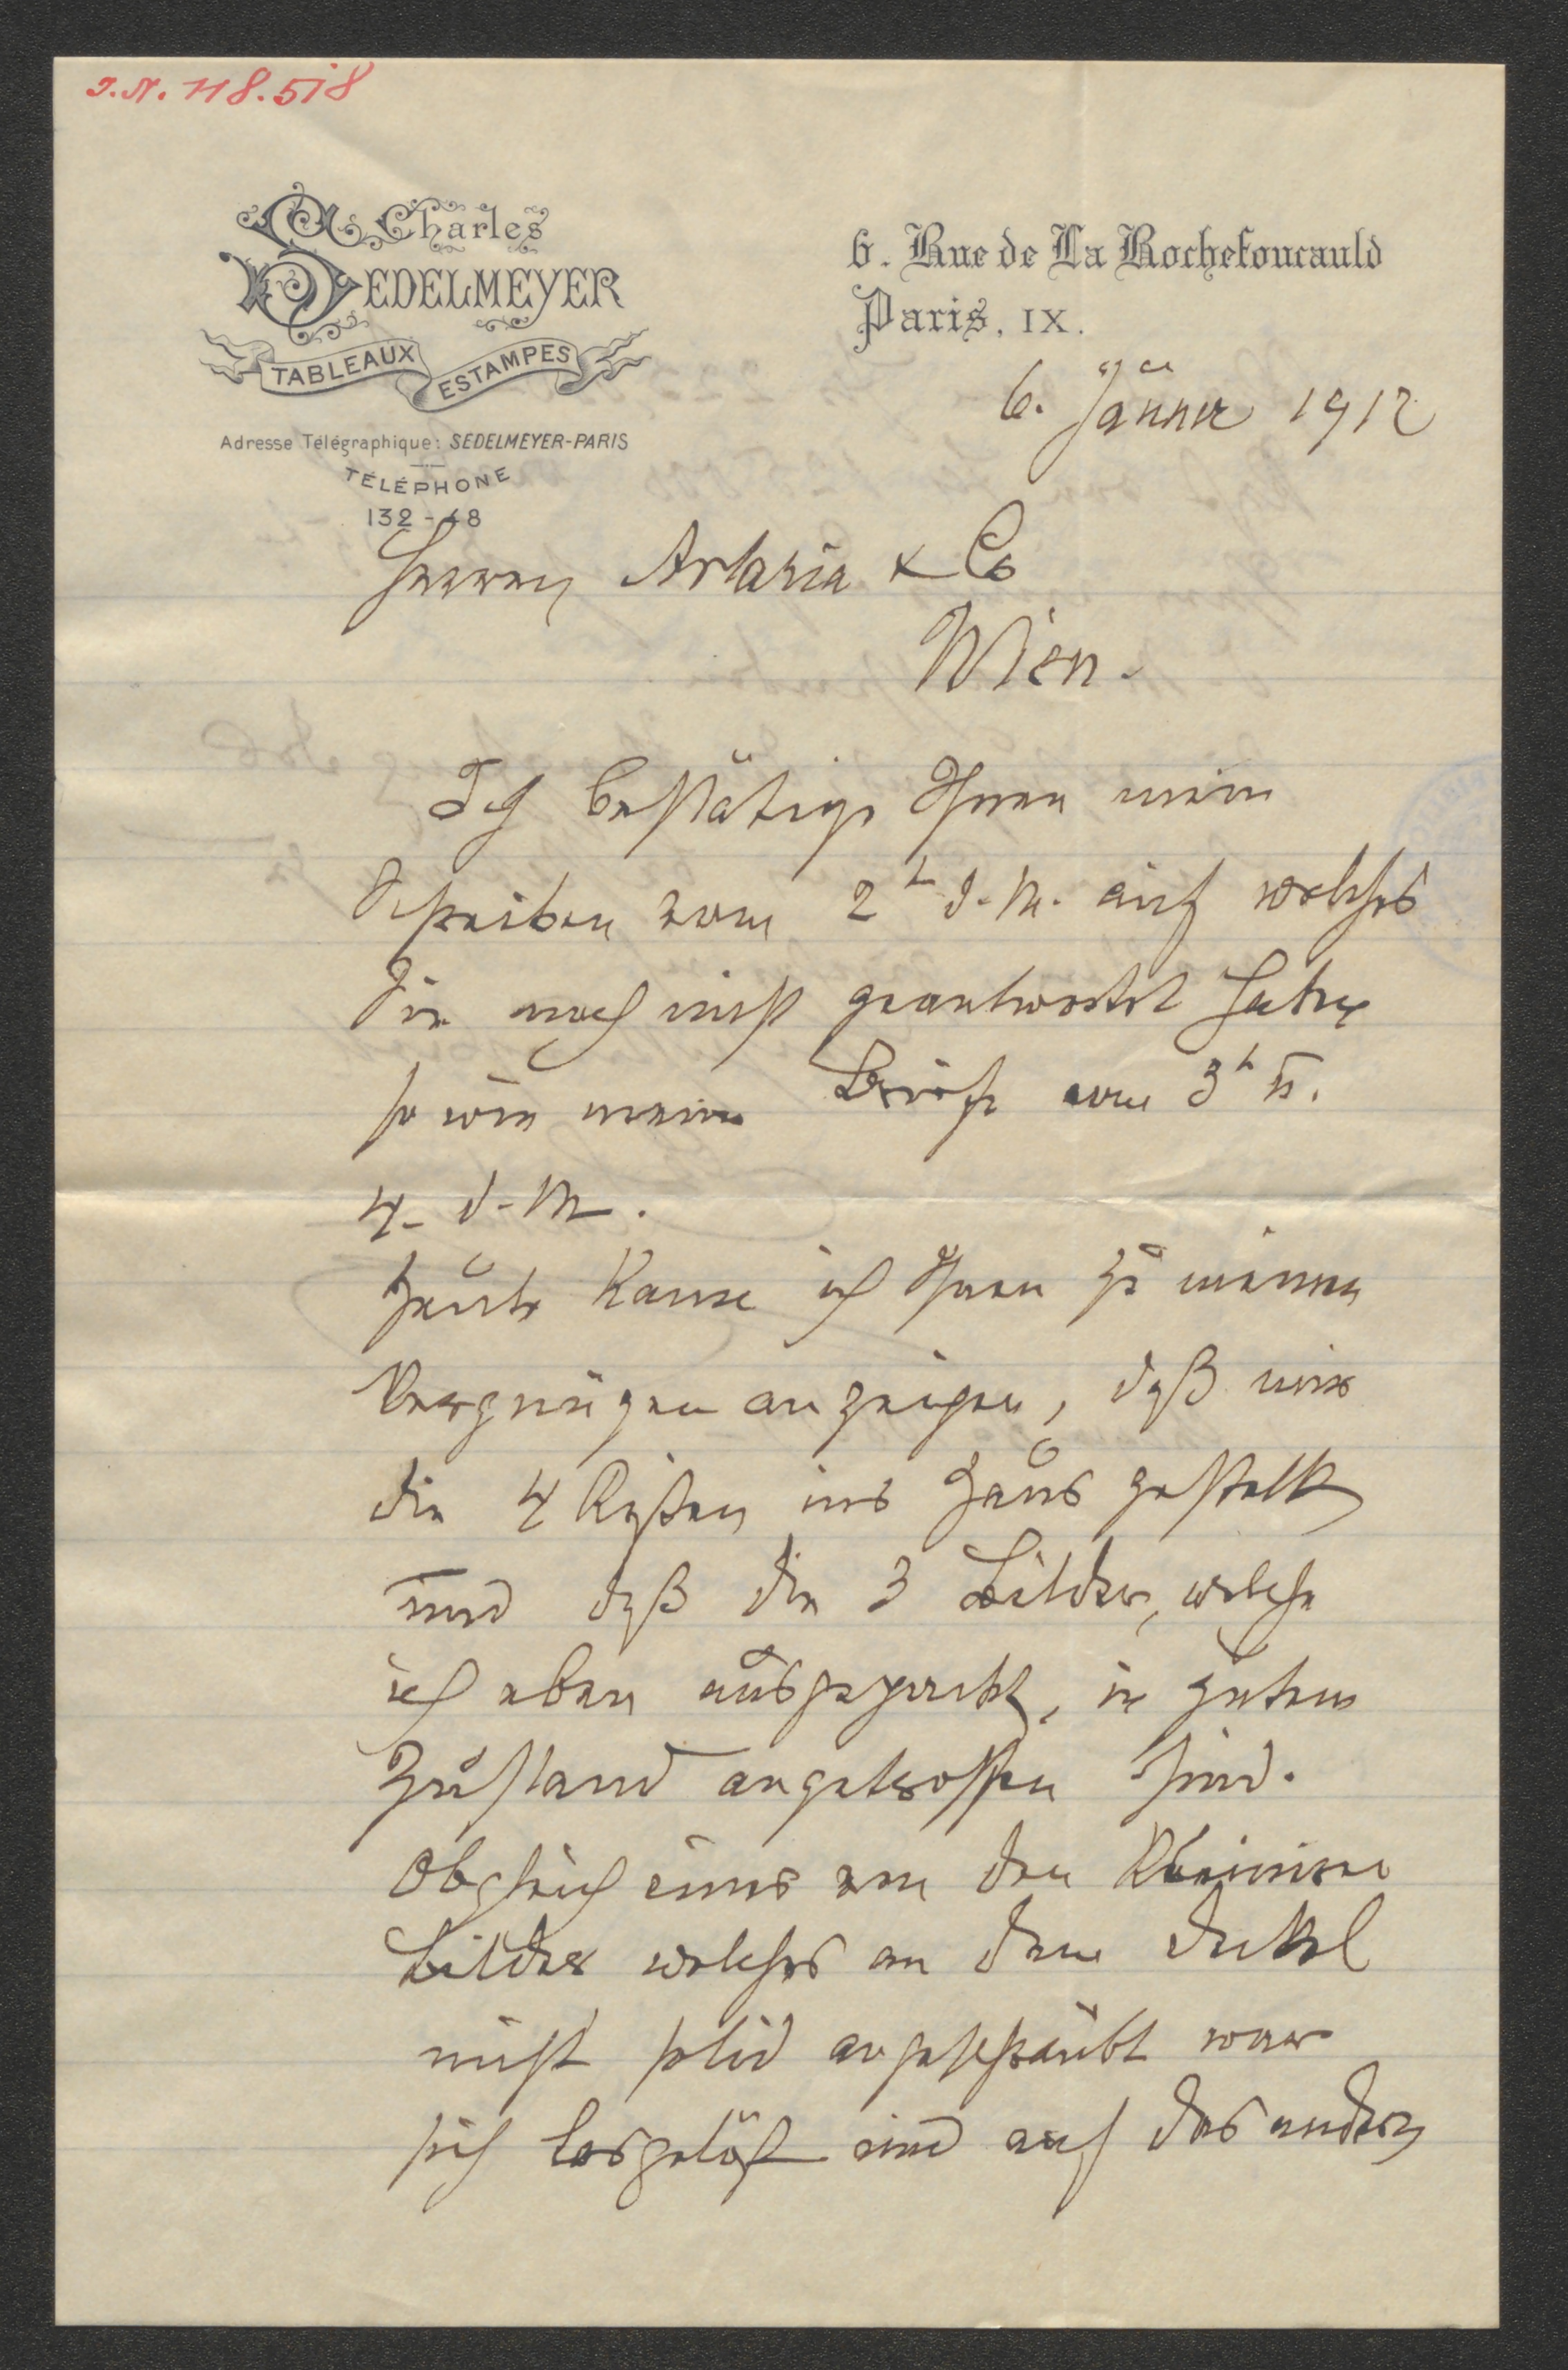 I.N. 118.518
Charles
SEDELMEYER
TABLEAUX
ESTAMPES
Adresse Télégraphique: SEDELMEYER-PARIS
TÉLÉPHONE
132-48
6. Rue de La Rochefoucauld
Paris, IX.
6. Jänner 1912
Herren Artaria & Co
Wien.
Ich bestätige Ihnen mein
Schreiben vom 2t d. M. auf welches
Sie noch nicht geantwortet haben
so wie meine Briefe vom 3t u.
4. d. M.
Heute kann ich Ihnen zu meinem
Vergnügen anzeigen, daß mir
die 4 Kisten ins Haus gestellt
und daß die 3 Bilder, welche
ich eben ausgepackt, in gutem
Zustand angetroffen sind.
Obgleich eines von den kleinen
Bilder welches an dem Dekel
nicht solid angeschraubt war
sich losgelöst und auf das andere